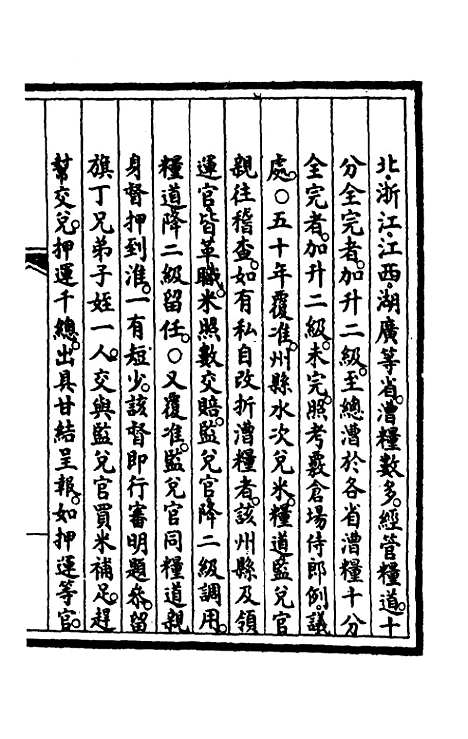 北浙江江西湖廣等省漕糧數多經管糧道十
分全完者加升二級至總漕於各省漕糧十分
全完者加升二級未完照考覈倉場侍郎例議
處○五十年覆准州縣水次兌米糧道監兌官
親往稽查如有私自改折漕糧者該州縣及領
運官皆革職米照數交賠監兌官降二級調用
糧道降二級留任○又覆准監兌官同糧道親
身督押到淮一有短少該督即行審明題叅留
旗丁兄弟子姪一人交與監兌官買米補足趕
幫交兌押運千總出具甘結呈報如押運等官